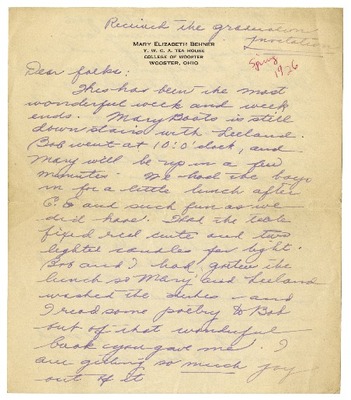 Received the graduation
invitation
MARY ELIZABETH BEHNER
Y. W. C. A. TEA HOUSE
COLLEGE OF WOOSTER
WOOSTER, OHIO
Spring
1926
Dear folks:
This has been the most
wonderful week and week
ends. Mary Boots is still
down stairs with Leeland.
Bob went at 10:0'clock, and
Mary will be up in a few
minutes. We had the boys
in for a little lunch after
C.E and such fun as we
did have. I had the table
fixed real cute and two
lighted candles for light.
Bob and I had gotten the
lunch so Mary and Leeland
washed the dishes - and
I read some poetry to Bob
out of that wonderful
book you gave me. I
am getting so much joy
out of it